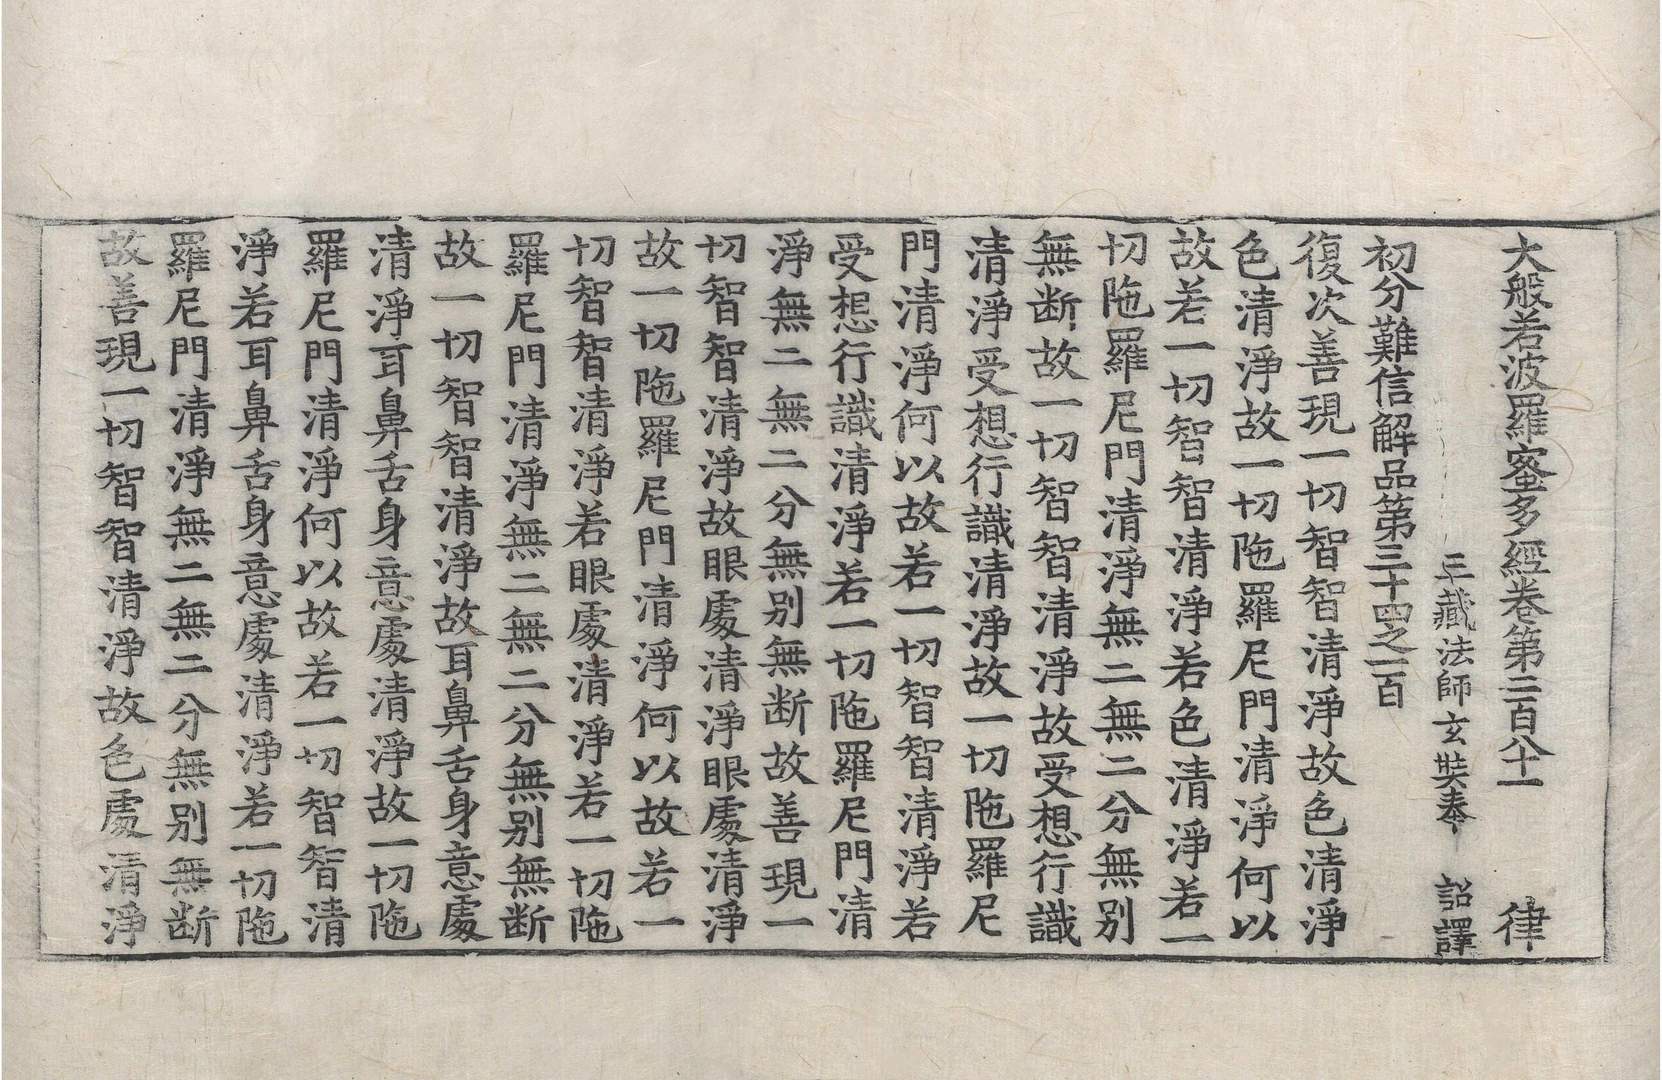 大般若波羅蜜多經卷第二百八十一 律
三藏法師玄奘奉 詔譯
初分難信解品第三十四之一百
復次善現一切智智清淨故色清淨
色清淨故一切陁羅尼門清淨何以
故若一切智智清淨若色清淨若一
切陁羅尼門清淨無二無二分無別
無断故一切智智清淨故受想行識
清淨受想行識清淨故一切陁羅尼
門清淨何以故若一切智智清淨若
受想行識清淨若一切陁羅尼門清
淨無二無二分無別無断故善現一
切智智清淨故眼處清淨眼處清淨
故一切陁羅尼門清淨何以故若一
切智智清淨若眼處清淨若一切陁
羅尼門清淨無二無二分無別無断
故一切智智清淨故耳鼻舌身意處
清淨耳鼻舌身意處清淨故一切陁
羅尼門清淨何以故若一切智智清
淨若耳鼻舌身意處清淨若一切陁
羅尼門清淨無二無二分無別無断
故善現一切智智清淨故色處清淨